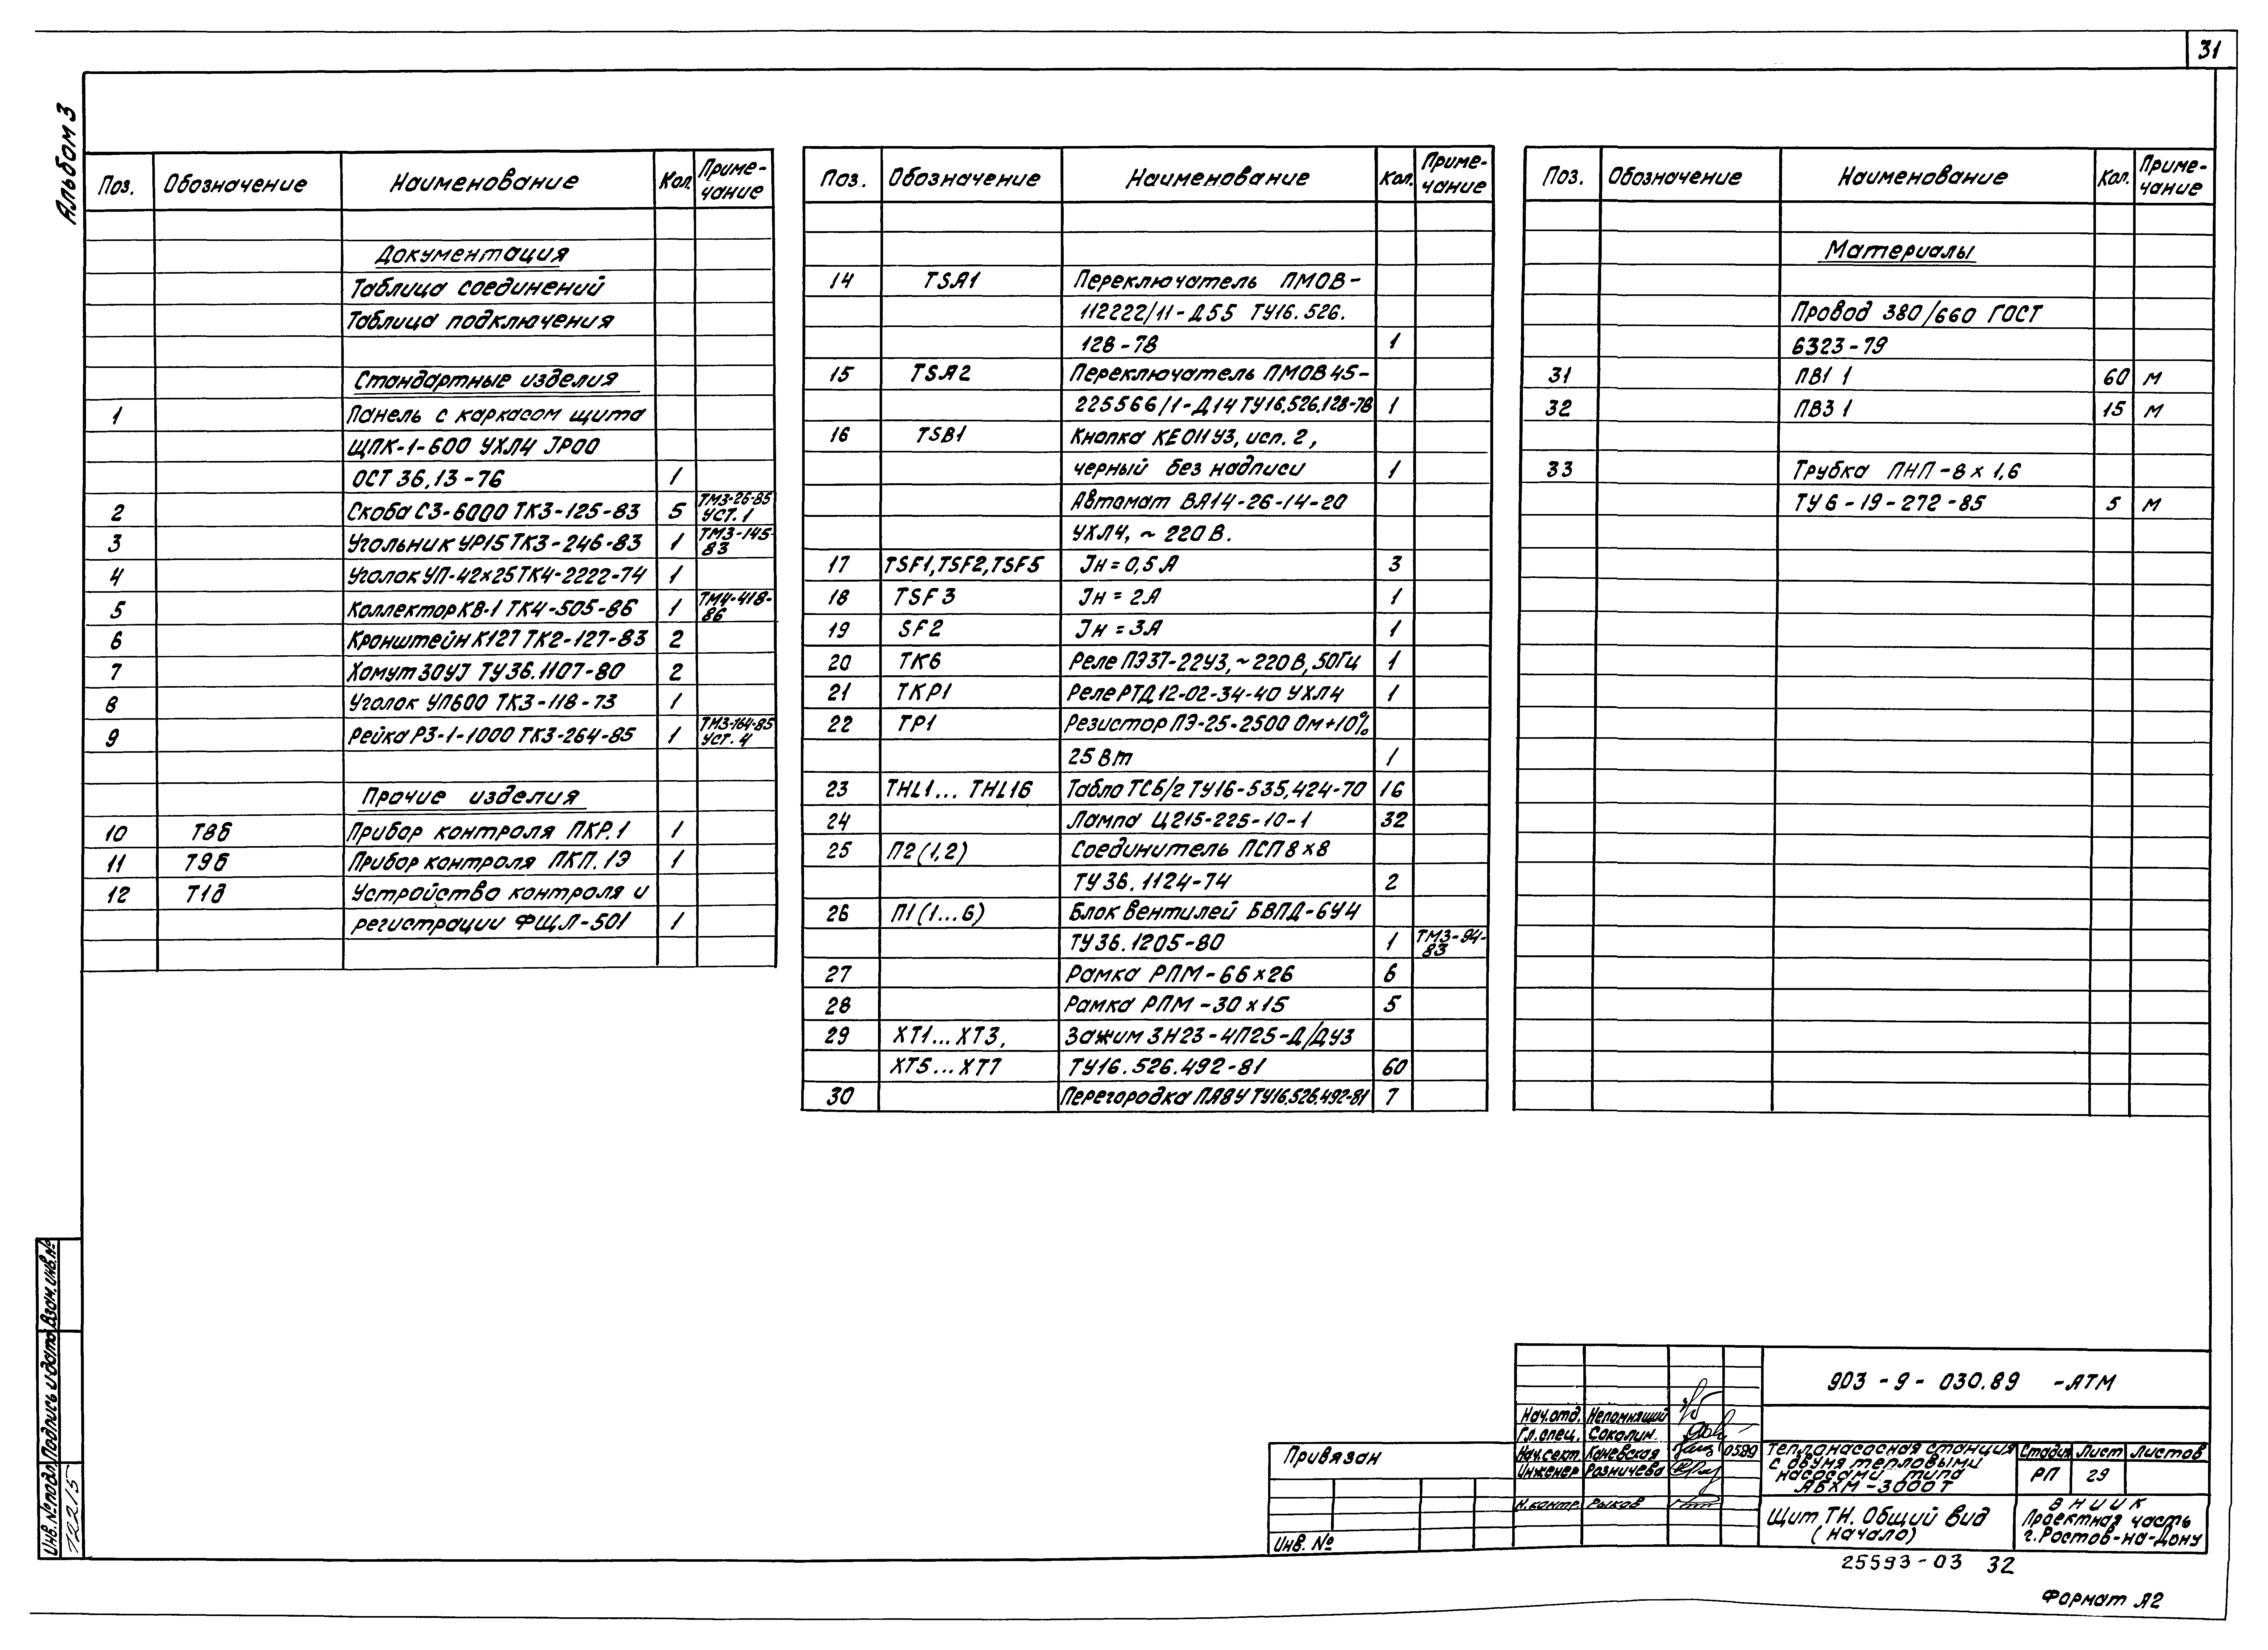 31
Альбом 3
Поз. Обозначение Наименование Кол. Приме-
чание
Документация
Таблица соединений
Таблица подключения
Стандартные изделия
1 Панель с каркасом щита
ЩПК-1-600 УХЛ4 JP00
ОСТ 36.13-76 1
2 Скоба С3-6000 ТК3-125-83 5 ТМ3-26-85
УСТ. 1
3 Угольник УР15 ТК3-246-83 1 ТМ3-145-
83
4 Уголок УП-42х25 ТК4-2222-74 1
5 Коллектор КВ-1 ТК4-505-86 1 ТМ4-418-
86
6 Кронштейн К127 ТК2-127-83 2
7 Хомут 30УJ ТУ 36.1107-80 2
8 Уголок УП600 ТК3-118-73 1
9 Рейка Р3-1-1000 ТК3-264-85 1 ТМ3-164-85
УСТ. 4
Прочие изделия
10 Т8б Прибор контроля ПКР.1 1
11 Т9б Прибор контроля ПКП.1Э 1
12 Т1д Устройство контроля и
регистрации ФЩЛ-501 1
Поз. Обозначение Наименование Кол. Приме-
чание
14 TSA1 Переключатель ПМОВ-
112222/11-Д55 ТУ16.526.
128-78 1
15 TSA2 Переключатель ПМОВ45-
225566/1-Д14 ТУ16.526.128-78 1
16 TSB1 Кнопка КЕ011У3, исп. 2,
черный без надписи 1
Автомат ВА14-26-14-20
УХЛ4, ~ 220 В.
17 TSF1,TSF2,TSF5 Jн = 0,5 А 3
18 TSF3 Jн = 2А 1
19 SF2 Jн = 3А 1
20 ТК6 Реле ПЭ37-22У3, ~ 220 В, 50Гц 1
21 ТКР1 Реле РТД12-02-34-40 УХЛ4 1
22 ТР1 Резистор ПЭ-25-2500 Ом+10%
25 Вт 1
23 THL1... THL16 Табло ТСБ/2 ТУ16-535,424-70 16
24 Лампа Ц215-225-10-1 32
25 П2(1,2) Соединитель ПСП 8х8
ТУ 36.1124-74 2
26 П1(1...6) Блок вентилей БВПД-6У4
ТУ 36.1205-80 1 ТМ3-94-
83
27 Рамка РПМ-66х26 6
28 Рамка РПМ-30х15 5
29 ХТ1...ХТ3, Зажим ЗН23-4П25-Д/ДУ3
ХТ5...ХТ7 ТУ16.526.492-81 60
30 Перегородка ПА8У ТУ16.526.492-81 7
Поз. Обозначение Наименование Кол. Приме-
чание
Материалы
Провод 380/660 ГОСТ
6323-79
31 ПВ1 1 60 м
32 ПВ3 1 15 м
33 Трубка ПНП-8х1,6
ТУ 6-19-272-85 5 м
Инв. № подл. Подпись и дата Взам. инв. №
Привязан
Инв. №
Нач.отд. Непомнящий
Гл.спец. Соколин.
Нач.сект Каневская 0589
Инженер Разничева
Н.контр. Рыков
903-9-030.89 -АТМ
Теплонасосная станция
с двумя тепловыми
насосами типа
АБХМ-3000Т
Стадия Лист Листов
РП 29
Щит ТН. Общий вид
(начало)
ВНИИК
Проектная часть
г.Ростов-на-Дону
25593-03 32
Формат А2